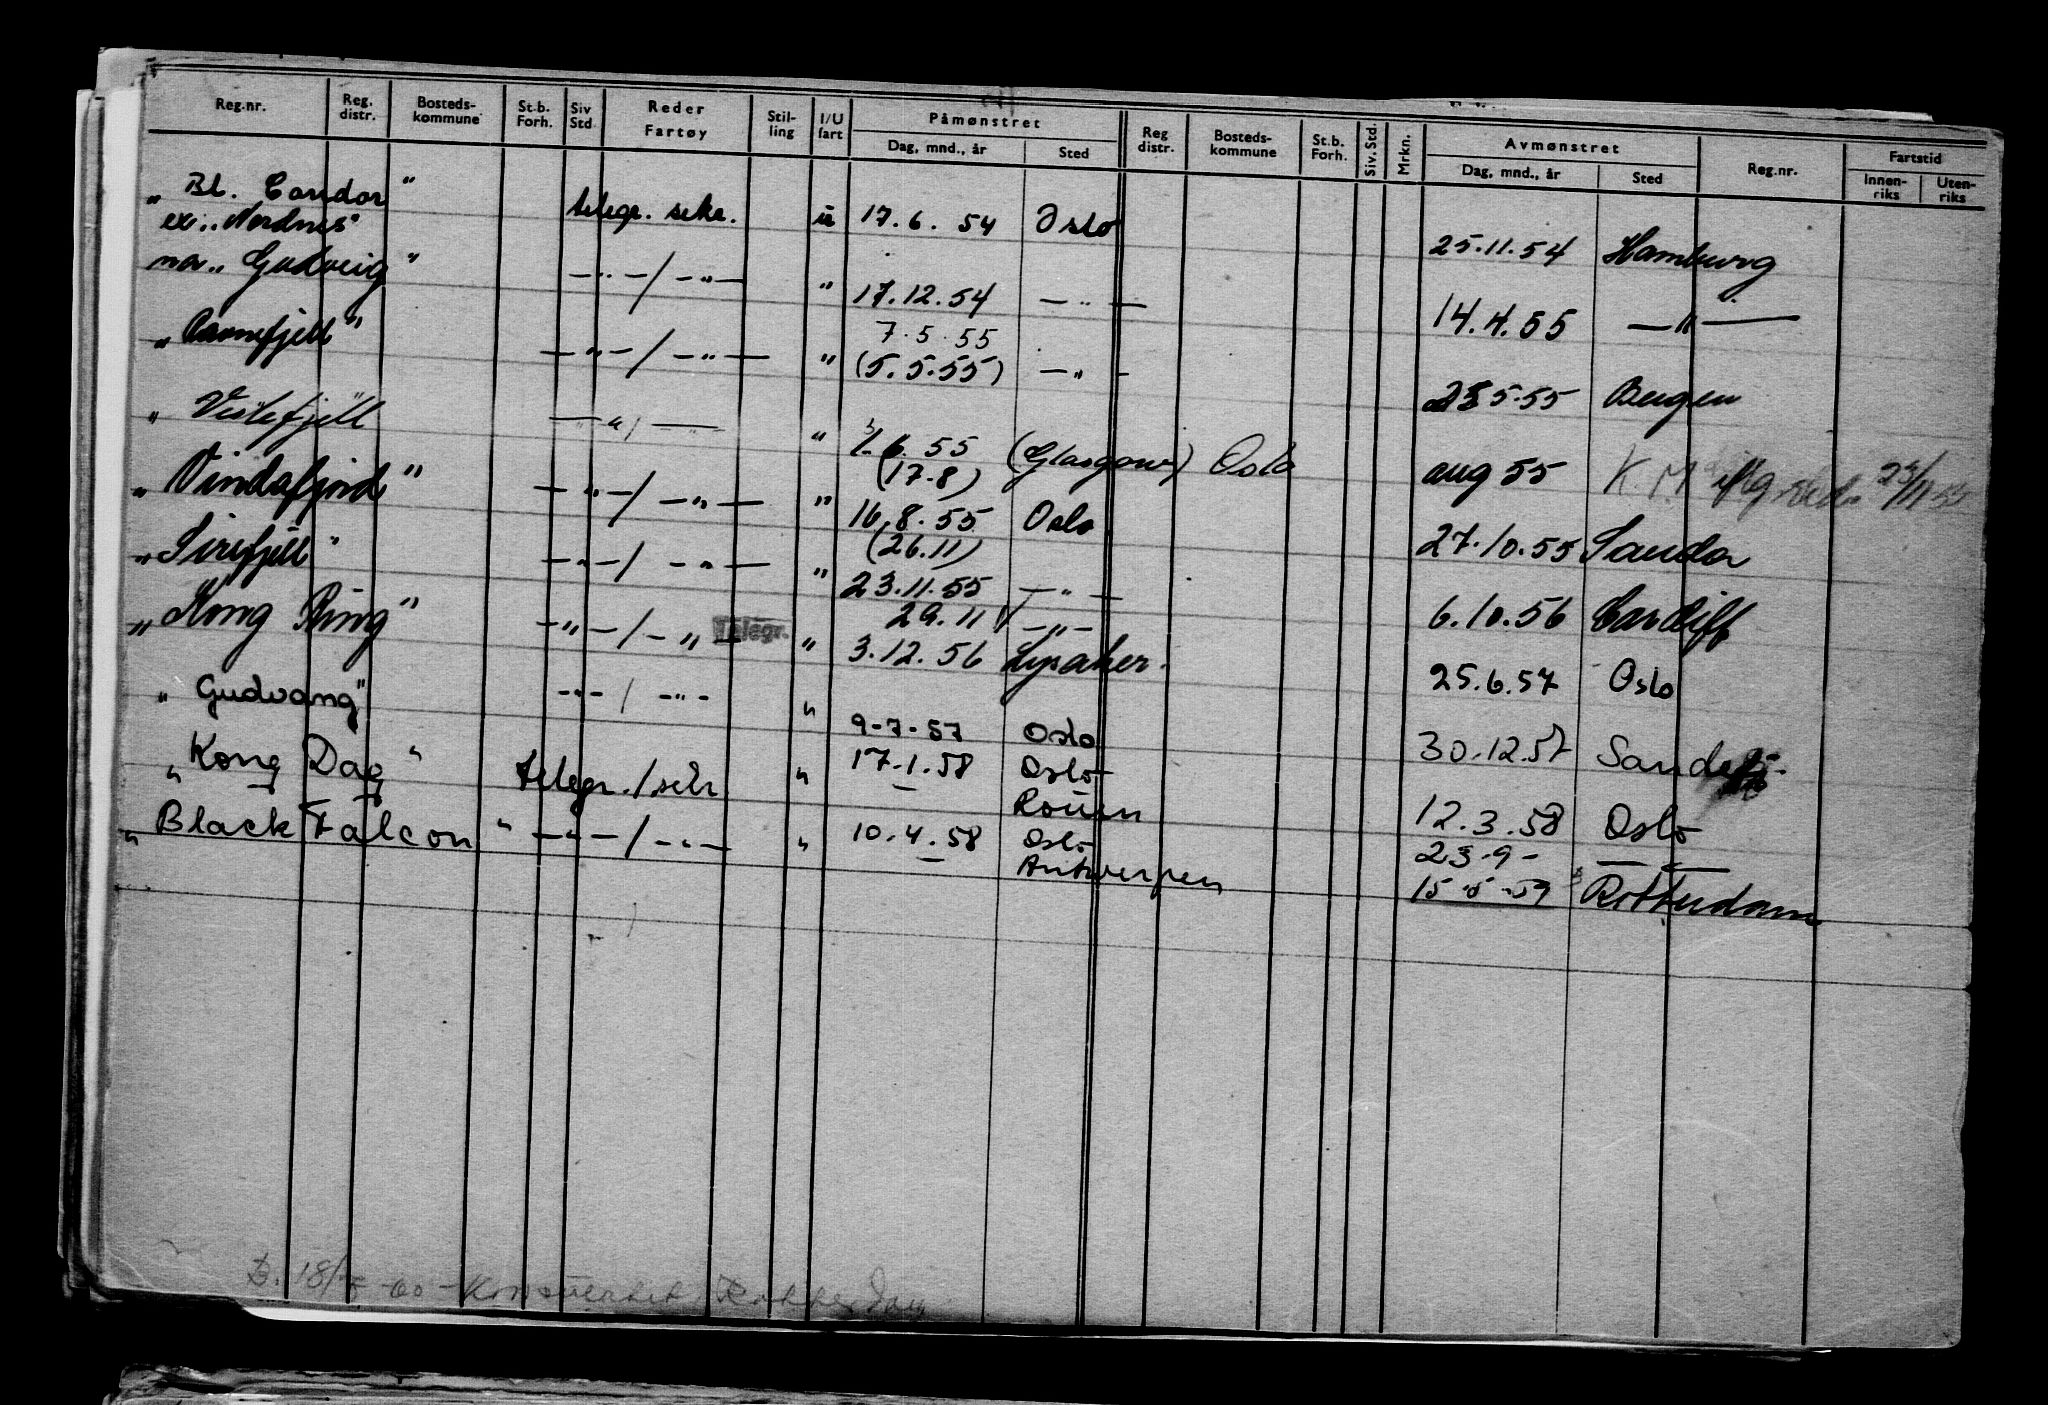 Reg.nr. Reg. distr. Bosteds-kommune St.b. Forh. Siv Std. Reder Fartøy Stil-ling I/U fart Påmønstret Dag, mnd., år Sted Reg distr. Bosteds-kommune St.b. Forh. Siv. Std. Mrkn. Avmønstret Dag, mnd., år Sted Reg.nr. Fartstid Innen-riks Uten-riks
„Bl. Condor" telegr. sekr. u 17.6.54 Oslo 25.11.54 Hamburg
ex „Nordnes"
„Gudveig" —"—/—"— " 17.12.54 —"— 14.4.55 —"—
7.5.55
„Ravnefjell" —"—/—"— " (5.5.55) —"— 5.55 Bergen
„Vestefjell —"—/—"— " 6.55 (Glasgow) Oslo aug 55 K.M 23/11 55
(17.8)
„Vindafjord" —"—/—"— " 16.8.55 Oslo 27.10.55 Sandar
(26.11)
„Sirefjell" —"—/—"— " 23.11.55 —"— 6.10.56 Cardiff
29.11 —"—
„Kong Ring" —"—/—"— Telegr. " 3.12.56 Lysaker 25.6.57 Oslo
„Gudvang" —"—/—"— " 9-7-57 Oslo 30.12.57
„Kong Dag" telegr./sekr " 17-1.58 Oslo 12.3.58 Oslo
— Rouen
„Black Falcon" —"—/—"— " 10.4.58 Oslo 23-9- —
— Antwerpen 15-5-59 Rotterdam
D. 18/ -60 - Konsulatet Rotterdam